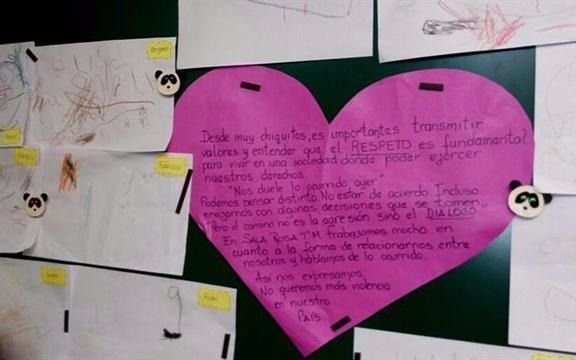 Desde muy chiquitos, es importantes transmitir
valores y entender que el RESPETO es fundamental
para vivir en una sociedad donde poder ejercer
nuestros derechos.
"Nos duele lo ocurrido ayer"
Podemos pensar distinto. No estar de acuerdo. Incluso
enojarnos con algunas decisiones que se tomen.
"Pero el camino no es la agresión sino el DIALOGO
En SALA ROSA T.M trabajamos mucho en
cuanto a la forma de relacionarnos entre
nosotros y hablamos de lo ocurrido.
Así nos expresamos,
No queremos más violencia
en nuestro
PAÍS.